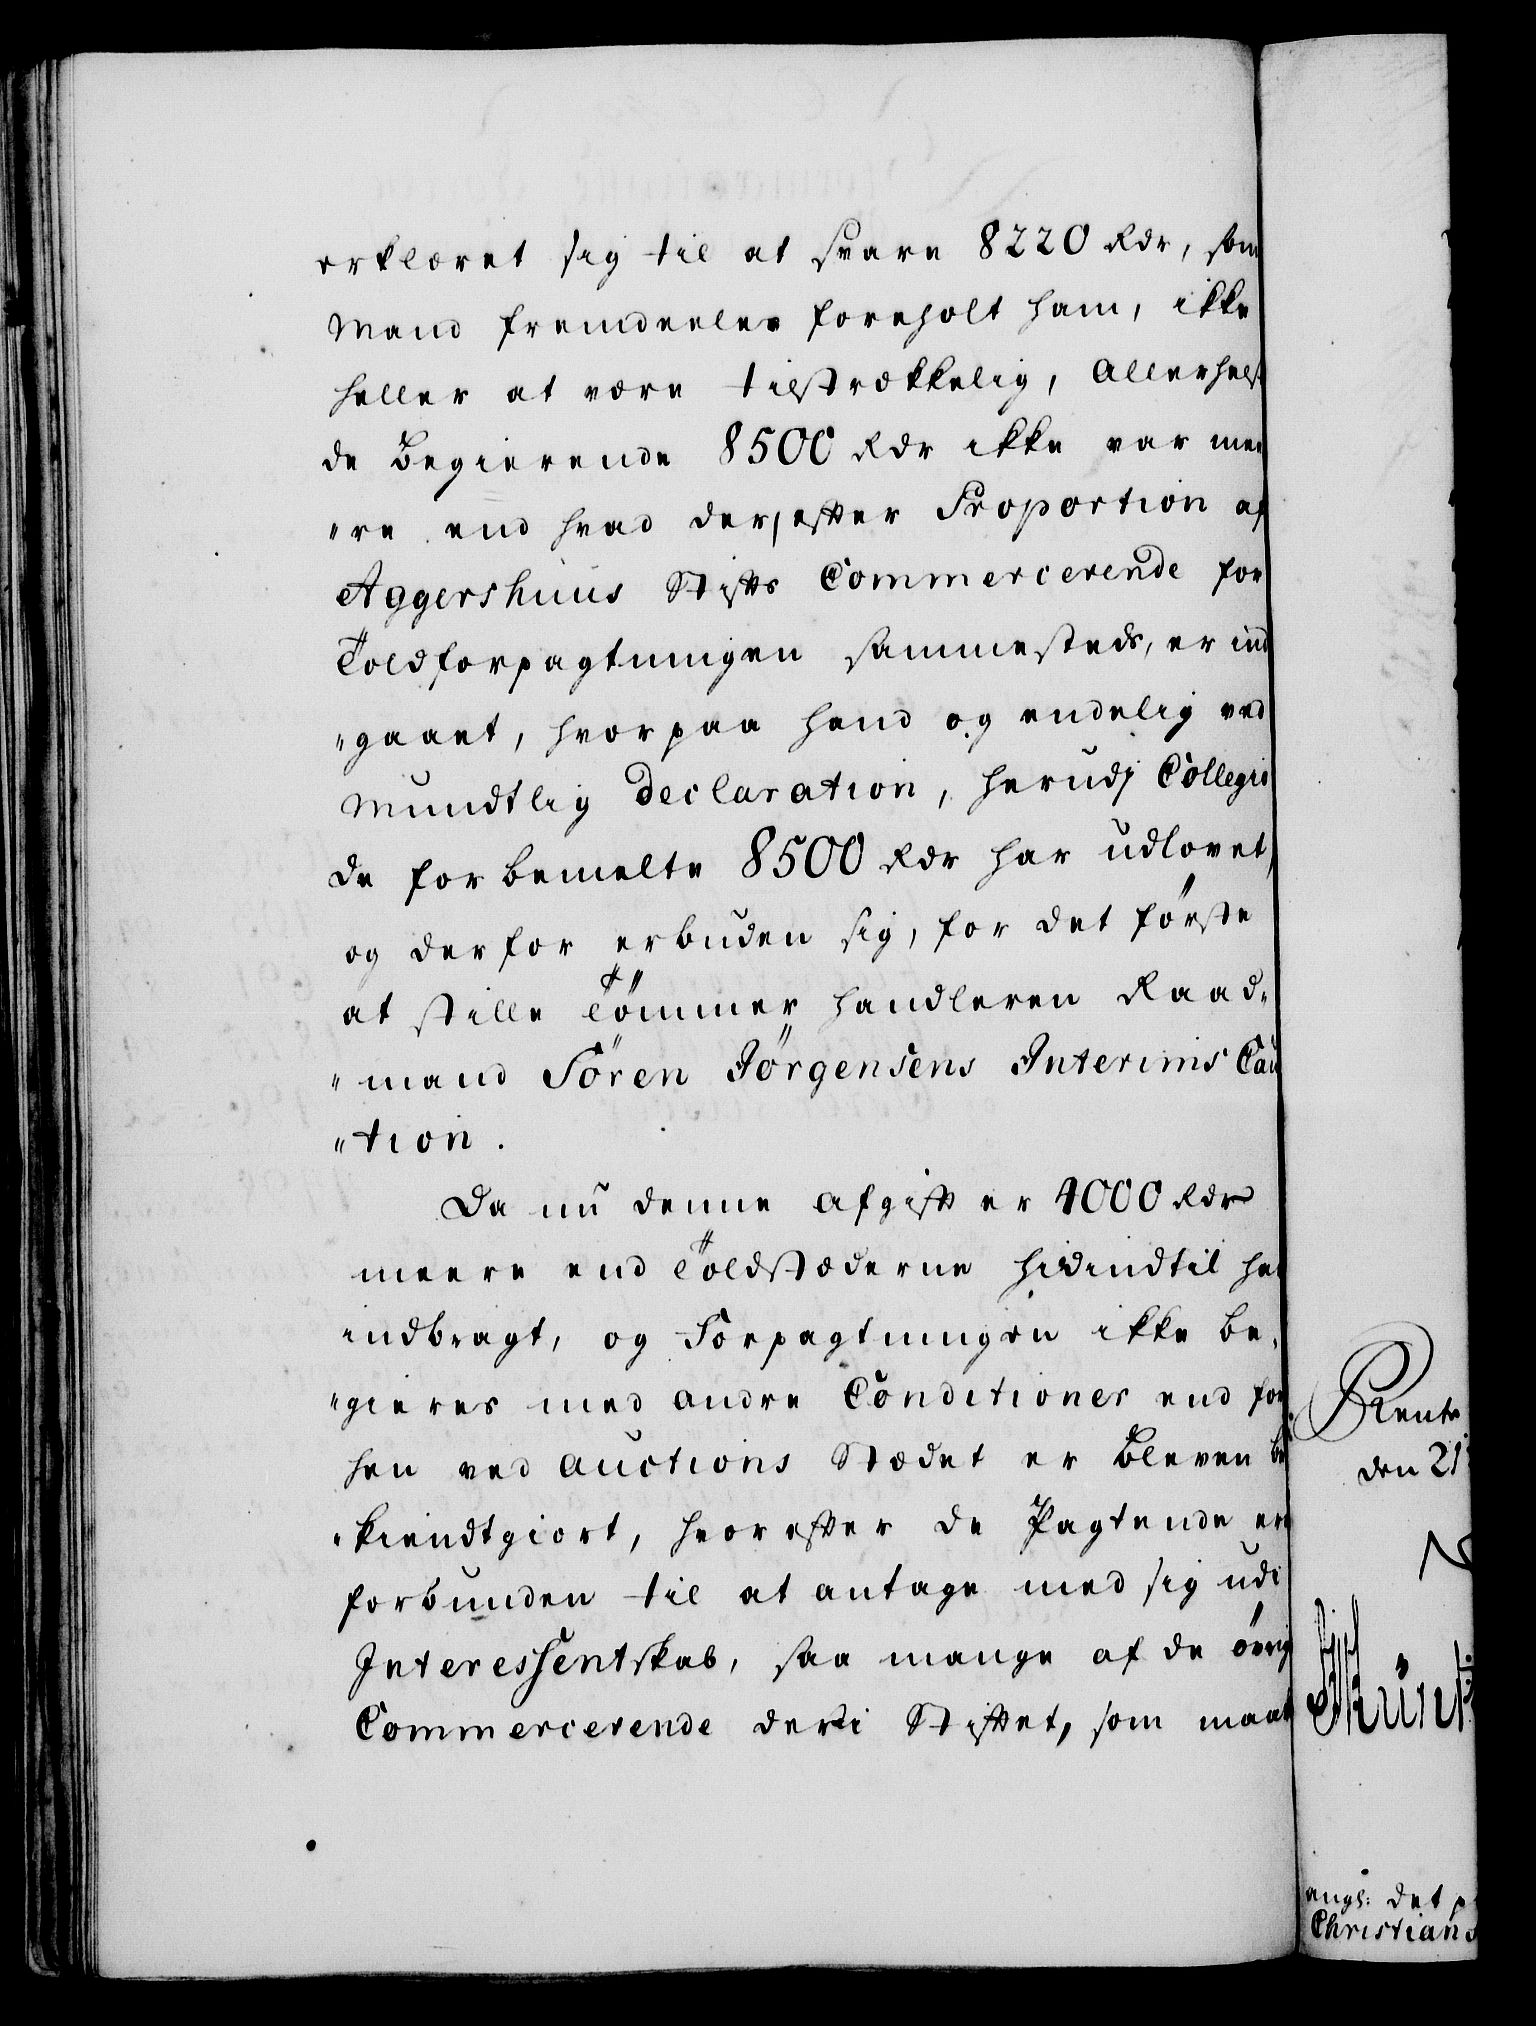 erklæret sig til at svare 8220 Rdr, som
Mand fremdeeles foreholt ham, ikke
heller at være tilstrækkelig, allerhelst
de begierende 8500 Rdr ikke var mee
"re end hvad der, efter Proportion af
Aggershuus Stifts Commercerende for
Toldforpagtningen sammesteds, er ind
"gaaet, hvorpaa hand og endelig ved
Mundtlig Declaration, herudj Collegio
de forbemelte 8500 Rdr har udlovet,
og derfor erbuden sig, for det første
at stille Tömmer handleren Raad„
"mand Sören Jörgensens Interims Cau
"tion.
Da nu denne afgift er 4000 Rdr
meere end Toldstæderne hidindtil har
indbragt, og Forpagtningen ikke be„
"gieres med andre Conditioner end for
hen ved Auctions Stædet er bleven be
"kiendtgiort, hvorefter de Pagtende ere
forbunden til at antage med sig udi
Interessentskab, saa mange af de övrig
Commercerende der i Stiftet, som maat
Rente
den 21
angl: det p
Christians